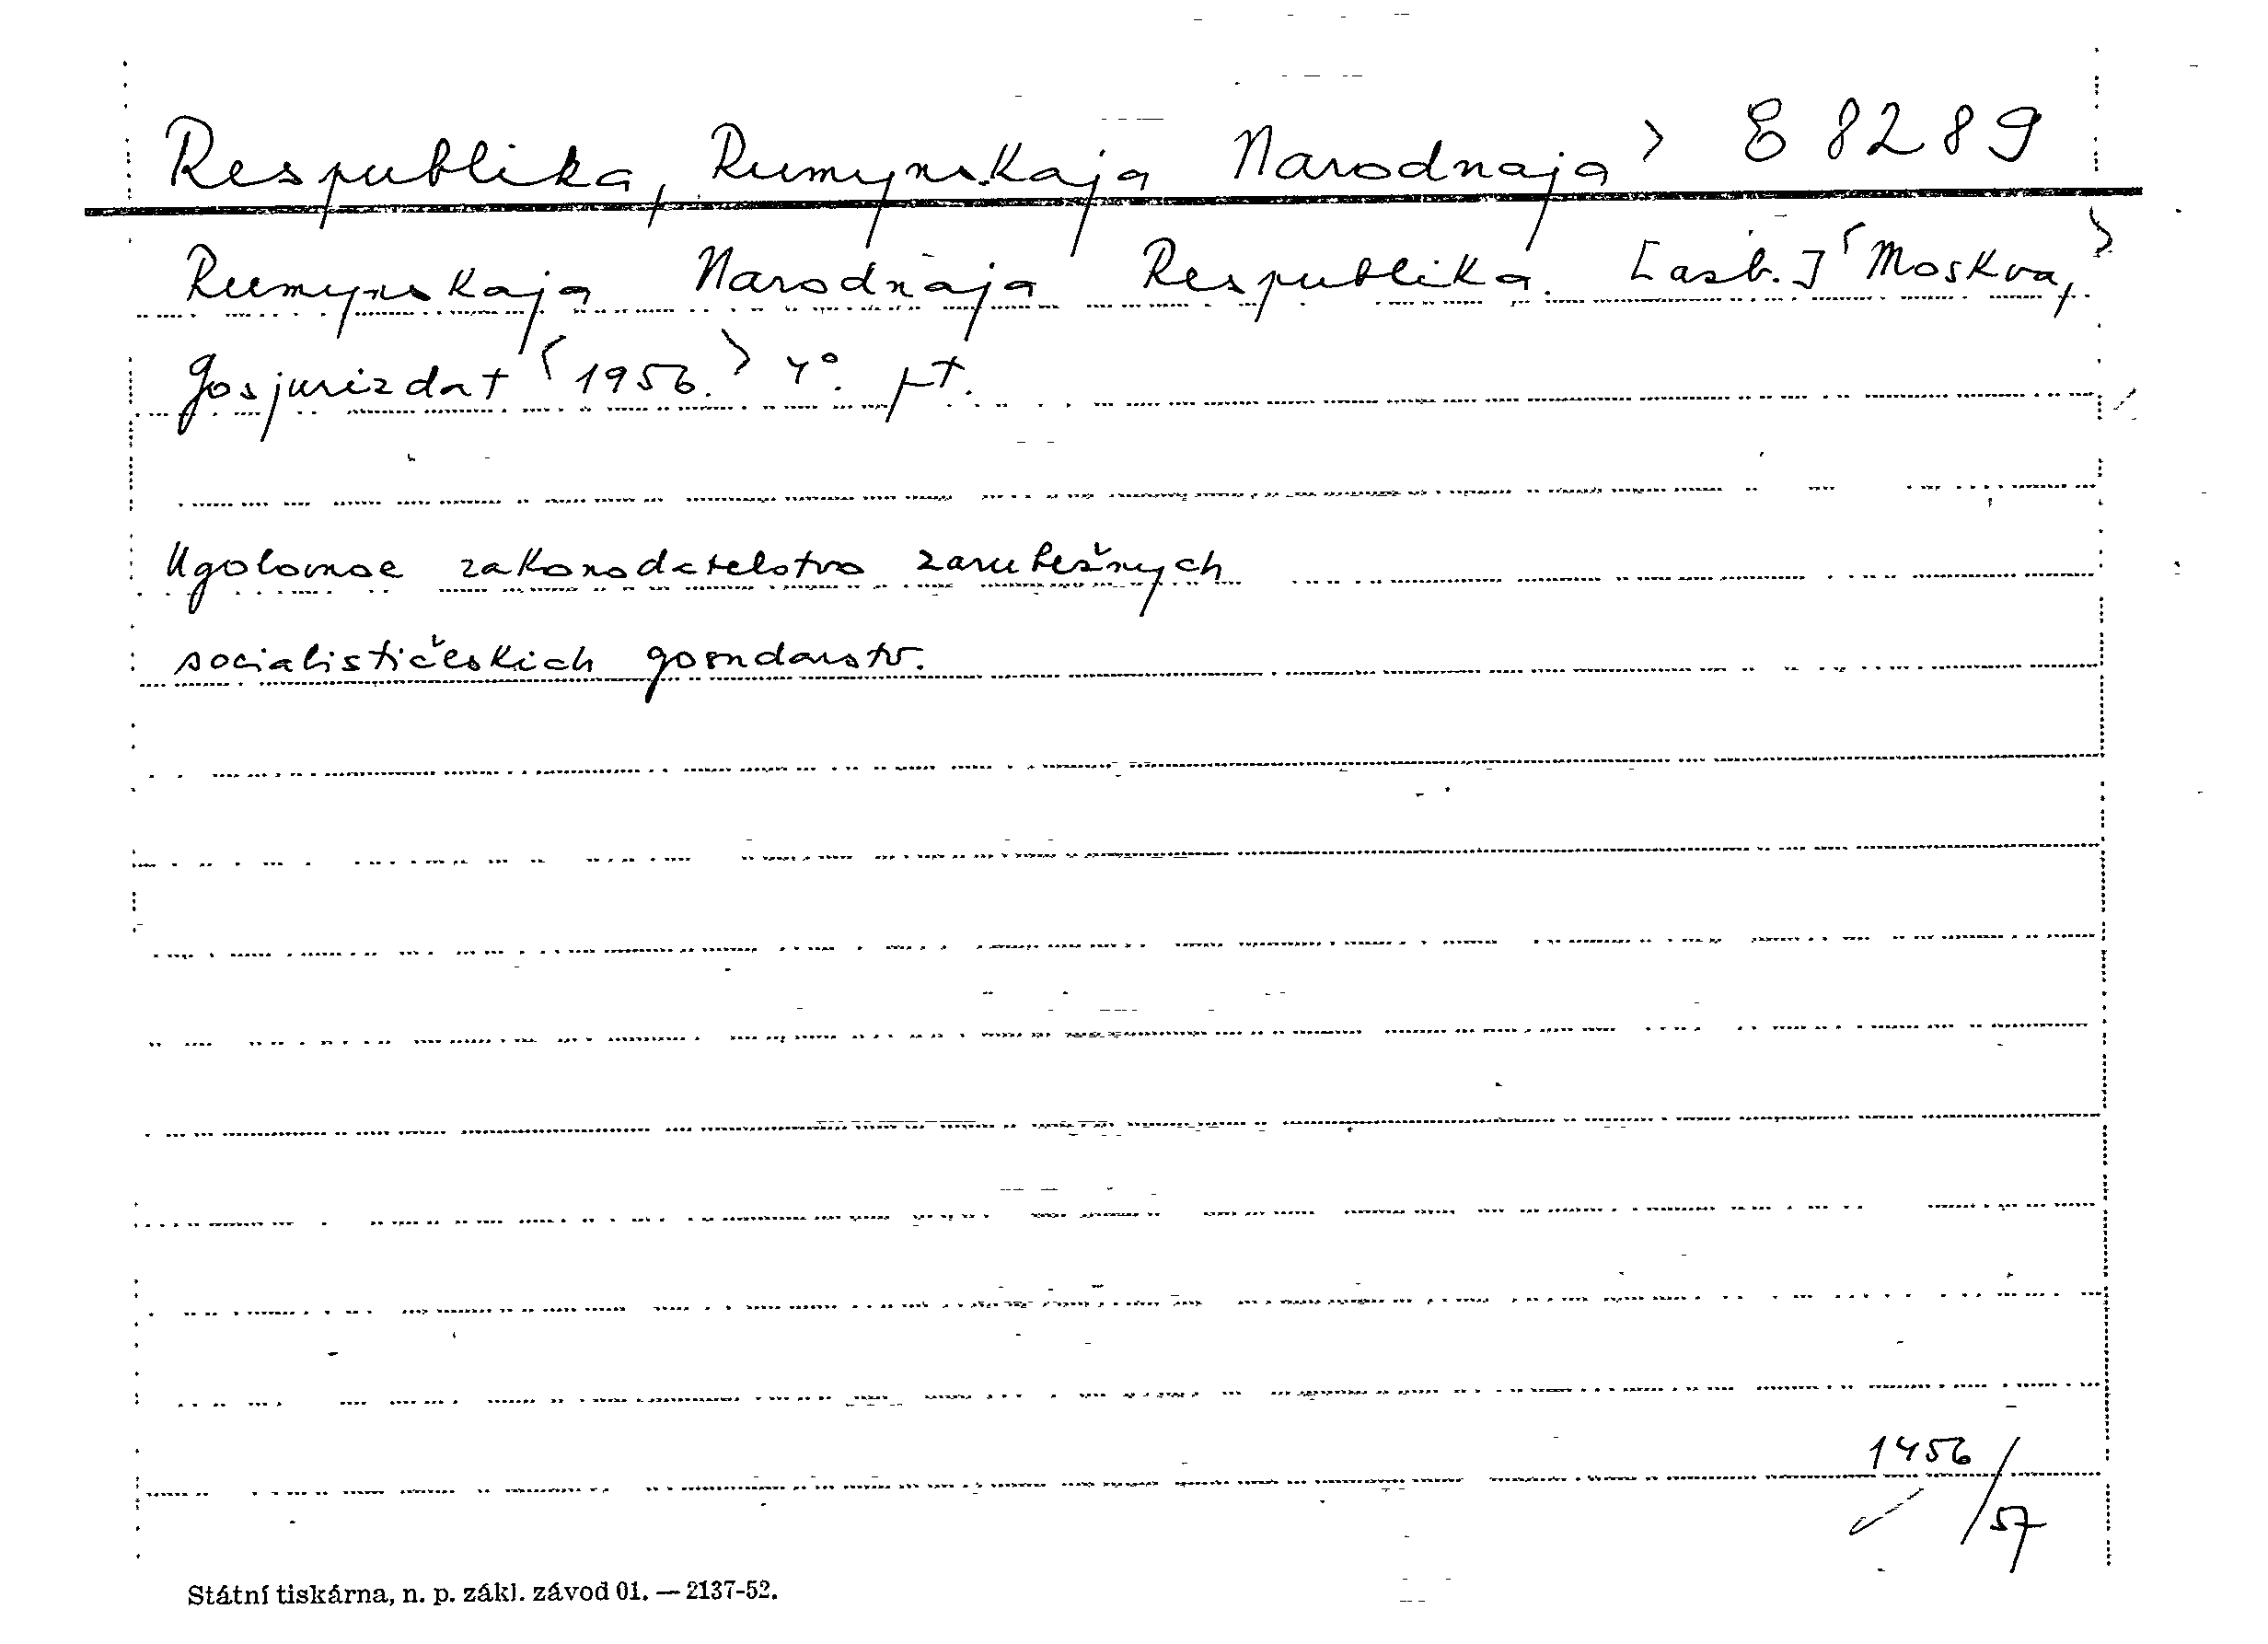 Respublika, Rumynskaja Narodnaja > E 8289
Rumynskaja Narodnaja Respublika. [azb.] <Moskva,>
Gosjurizdat <1956.> 4°. pt.
Ugolovnoe zakonodatelstvo zarubežnych
socialističeskich gosudarstv.
1456/57
Státní tiskárna, n. p. zákl. závod 01. — 2137-52.